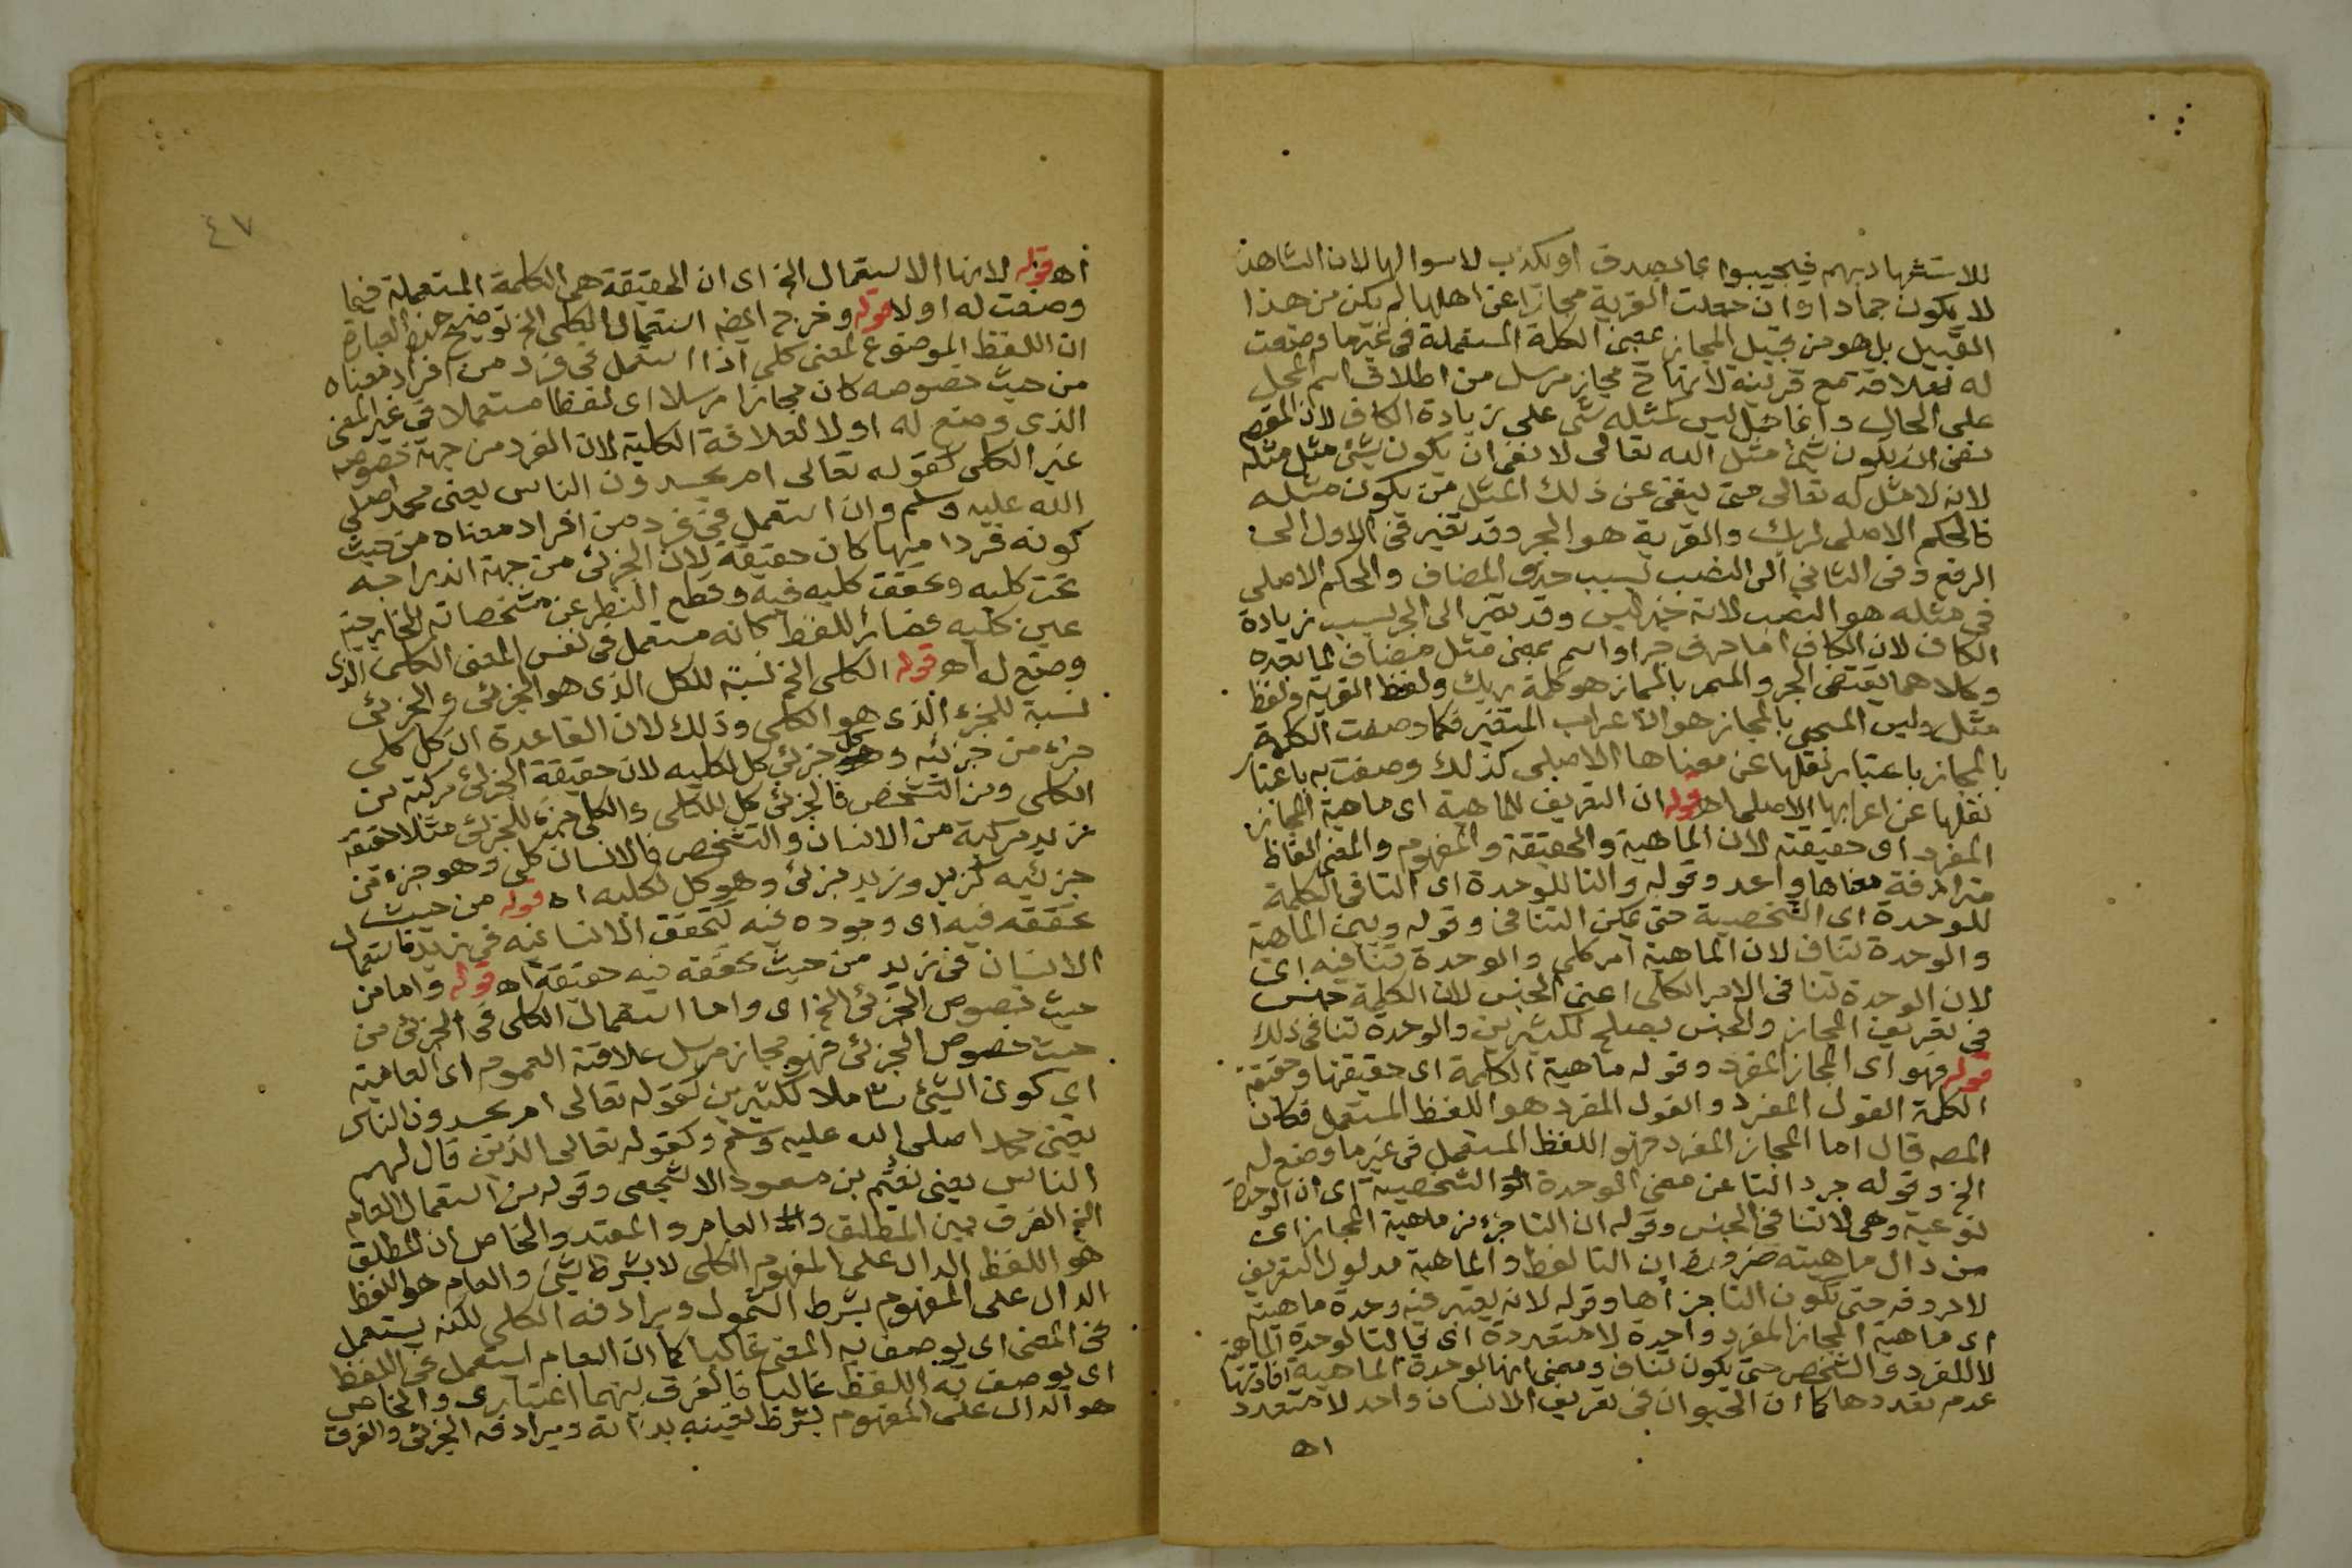 للاستشهاد بهم فيجيبوا بما يصدق او يكذب لاسوالها لان الشاهد
لا يكون جمادا وان جعلت القرية مجازا عن اهلها لم يكن من هذا
القبيل بل هو من قبيل المجاز بمعنى الكلمة المستعملة في غير ما وضعت
له لعلاقة مع قرينة لانها ح مجاز مرسل من اطلاق اسم المحل
على الحال وانما حمل ليس كمثله شى على زيادة الكاف لان المقصود
نفى ان يكون شئ مثل الله تعالى لا نفى ان يكون شئ مثل مثله
لانه لا مثل له تعالى حتى ينفى عن ذلك المثل من يكون مثله
فالحكم الاصلى لربك والقرية هو الجر وقد تغير فى الاول الى
الرفع وفى الثاني الى النصب بسبب حذف المضاف والحكم الاصلى
فى مثله هو النصب لانه خبر ليس وقد تغير الى الجر بسبب زيادة
الكاف لان الكاف اما حرف جر او اسم بمعنى مثل مضاف لما بعده
وكلاهما يقتضى الجر والمسمى بالمجاز هو كلمة ربك ولفظ القرية ولفظ
مثل وليس المسمى بالمجاز هو الاعراب المتغير فكما وصفت الكلمة
بالمجاز باعتبار نقلها عن معناها الاصلى كذلك وصفت به باعتبار
نقلها عن اعرابها الاصلى اه قوله ان التعريف للماهية اى ماهية المجاز
المفرد اى حقيقته لان الماهية والحقيقة والمفهوم والمعنى الفاظ
مترادفة معناها واحد وقوله والتا للوحدة اى التا فى الكلمة
للوحدة اى الشخصية حتى يمكن التنافى وقوله وبين الماهية
والوحدة تناف لان الماهية امر كلى والوحدة تنافيه اى
لان الوحدة تنافى الامر الكلى اعنى الجنس لان الكلمة جنس
فى تعريف المجاز والجنس يصلح لكثيرين والوحدة تنافى ذلك
قوله فهو اى المجاز المفرد وقوله ماهية الكلمة اى حقيقتها وحقيقة
الكلمة القول المفرد والقول المفرد هو اللفظ المستعمل فكان
المصه قال اما المجاز المفرد فهو اللفظ المستعمل فى غير ما وضع له
الخ وقوله جرد التا عن معنى الوحدة الشخصية اى ان الوحدة
نوعية وهى لا تنافى الجنس وقوله ان التا جزء من ماهية المجاز اى
من دال ماهيته ضرورة ان التا لفظ والماهية مدلول التعريف
لا حروفه حتى تكون التا جزأها وقوله لانه يعتبر فيه وحدة ماهية
اى ماهية المجاز المفرد واحدة لا متعددة اى فالتا لوحدة الماهية
لا للفرد والشخص حتى يكون تناف ومعنى انها لوحدة الماهية افادتها
عدم تعددها كما ان الحيوان فى تعريف الانسان واحد لا متعدد
اه
٤٧
اه قوله لانها الاستعمال الخ اى ان الحقيقة هى الكلمة المستعملة فيما
وضعت له اولا قوله وخرج ايضه استعمال الكلى الخ توضيح هذه العبارة
ان اللفظ الموضوع لمعنى كلى اذا استعمل فى فرد من افراد معناه
من حيث خصوصه كان مجازا مرسلا اى لفظا مستعملا فى غير المعنى
الذى وضع له اولا لعلاقة الكلية لان الفرد من جهة خصوصه
غير الكلى كقوله تعالى ام يحسدون الناس يعنى محمد صلى
الله عليه وسلم وان استعمل فى فرد من افراد معناه من حيث
كونه فردا منها كان حقيقة لان الجزئى من جهة اندراجه
تحت كليه وتحقق كليه فيه وقطع النظر عن مشخصاته الخارجية
عين كليه فصار اللفظ كانه مستعمل فى نفس المعنى الكلى الذى
وضع له اه قوله الكلى الخ نسبة للكل الذى هو الجزئى والجزئى
نسبة للجزء الذى هو الكلى وذلك لان القاعدة ان كل كلى
جزء من جزئيه وكل جزئى كل لكليه لان حقيقة الجزئى مركبة من
الكلى ومن التشخص فالجزئى كل للكلى والكلى جزء للجزئى مثلا حقيقة
زيد مركبة من الانسان والتشخص فالانسان كلى وهو جزء من
جزئيه كزيد وزيد جزئى وهو كل لكليه اه قوله من حيث
تحققه فيه اى وجوده فيه كتحقق الانسانية فى زيد فاستعمال
الانسان فى زيد من حيث تحققه فيه حقيقة اه قوله واما من
حيث خصوص الجزئى الخ اى واما استعمال الكلى فى الجزئى من
حيث خصوص الجزئى فهو مجاز مرسل علاقته العموم اى العامية
اى كون الشئ شاملا لكثيرين كقوله تعالى ام يحسدون الناس
يعنى محمدا صلى الله عليه وسلم وكقوله تعالى الذين قال لهم
الناس يعنى نعيم بن مسعود الاشجعى وقوله من استعمال العام
الخ الفرق بين المطلق والعام والمقيد والخاص ان المطلق
هو اللفظ الدال على المفهوم الكلى لا بشرط شئ والعام هو اللفظ
الدال على المفهوم بشرط الشمول ويرادفه الكلى لكنه يستعمل
فى المعنى اى يوصف به المعنى غالبا كما ان العام استعمل فى اللفظ
اى يوصف به اللفظ غالبا فالفرق بينهما اعتبارى والخاص
هو الدال على المفهوم بشرط تعينه بذاته ويرادفه الجزئى والفرق